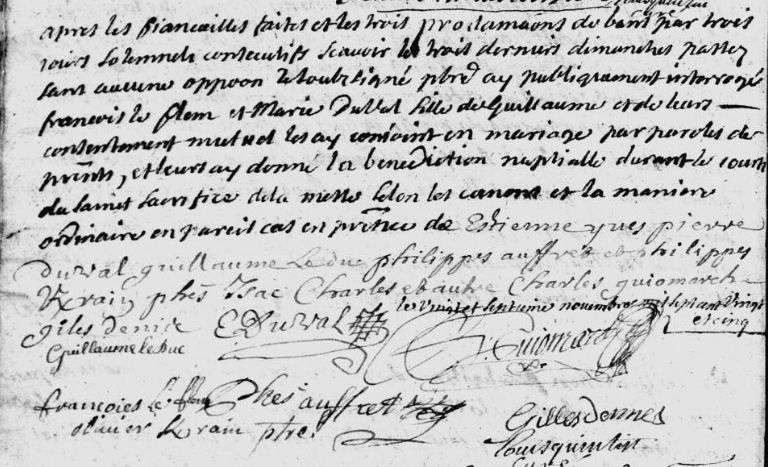 apres les fiancailles faites et les trois proclamaons de bans par trois
jours solemnels consecutifs scavoir les trois derniers dimanches passez
sans aucune oppoon Je soubzsigné pbre ay publiquement interrogé
francois le flem et Marie Duval fille de Guillaume et de leurs
consentement mutuel les ay conjoint en mariage par paroles de
pnts, et leurs ay donné la benediction nuptialle durant le cours
du sainct sacrifice de la messe selon les canons et la maniere
ordinaire en pareil cas en pnce de Estienne yves pierre
duval guillaume Le duc philippes auffret et philippes
Isac Charles et autre Charles guiomarch
le vingt et septieme novembre mil sept cent vingt
et cinq
giles denice E Duval
Guiomarch
Guillaume Le Duc
francoies Le flem Phes auffret
olivier pbre
Gilles dennes
louis quintin